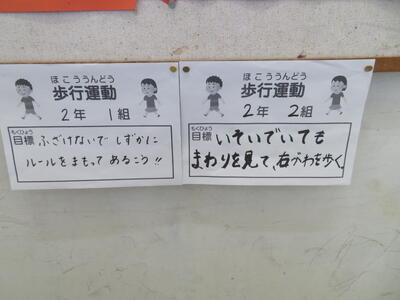 ほこううんどう
歩行運動
2年 1組
もくひょう
目標 ふざけないで しずかに
ルールをまもって あるこう!!
ほこううんどう
歩行運動
2年 2組
もくひょう
目標 いそいでいても
まわりを見て、右がわを歩く。